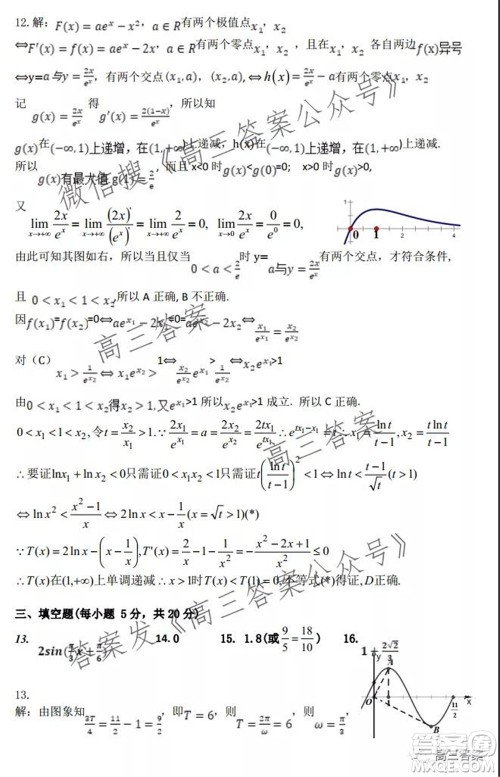 12.解：F(x) = aeˣ − x²，a ∈ R有两个极值点x₁，x₂
⇔F′(x) = f(x) = aeˣ − 2x，a ∈ R有两个零点x₁，x₂，且在x₁，x₂各自两边f(x)异号
⇔y=a与y=2x/eˣ，有两个交点(x₁,a)，(x₂,a),⇔h(x)=2x/eˣ−a有两个零点x₁，x₂
记 g(x)=2x/eˣ 得 g′(x)=2(1−x)/eˣ，所以知
g(x)在(−∞,1)上递增，在(1,+∞)上递减，h(x)在(−∞,1)上递增，在(1,+∞)上递减.
所以g(x)有最大值g(1)=2/e，而且x<0时g(x)<g(0)=0; x>0时g(x)>0,
又 lim x→+∞ 2x/eˣ = lim x→+∞ (2x)′/(eˣ)′ = lim x→+∞ 2/eˣ = 0, lim x→0 2x/eˣ = 0/e⁰ = 0,
由此可知其图如右，所以当且仅当 0<a<2/e 时y=a与y=2x/eˣ有两个交点，才符合条件,
且 0<x₁<1<x₂,所以A正确, B不正确.
因f(x₁)=f(x₂)=0⇔
对（C）x₁>1/e^x₂⇔x₁e^x₂>1⇔
由0<x₁<1<x₂得x₂>1,又e^x₁>1所以x₂e^x₁>1成立. 所以C正确.
0<x₁<1<x₂,令t=x₂/x₁>1.∵2x₁/e^x₁=a=2x₂/e^x₂=2tx₁/e^tx₁∴e^(tx₁−x₁)=t∴x₁=ln t/(t−1),x₂=t ln t/(t−1)
∴要证lnx₁+lnx₂<0只需证0<x₁x₂<1只需证t(ln t/(t−1))²<1⇔ln t<(t−1)/√t(t>1)
⇔ln x²<(x²−1)/x⇔2ln x<x−1/x(x=√t>1)(*)
∵T(x)=2ln x−(x−1/x),T′(x)=2/x−1−1/x²=−(x²−2x+1)/x²≤0
∴T(x)在(1,+∞)上单调递减∴x>1时T(x)<T(1)=0,不等式(*)得证,D正确.
三、填空题(每小题 5 分，共 20 分)
13. 2sin(π/3 x+π/6) 14.0 15. 1.8(或9/5=18/10) 16. 2√2/3
13.
解：由图象知 3T/4=11/2−1=9/2，即T=6，则T=2π/ω=6，则ω=π/3,
0 1 2 4
1
y
A
O
B
11/2
x
微信搜《高三答案公众号》
高三答案
答案发《高三答案公众号》
高三答案